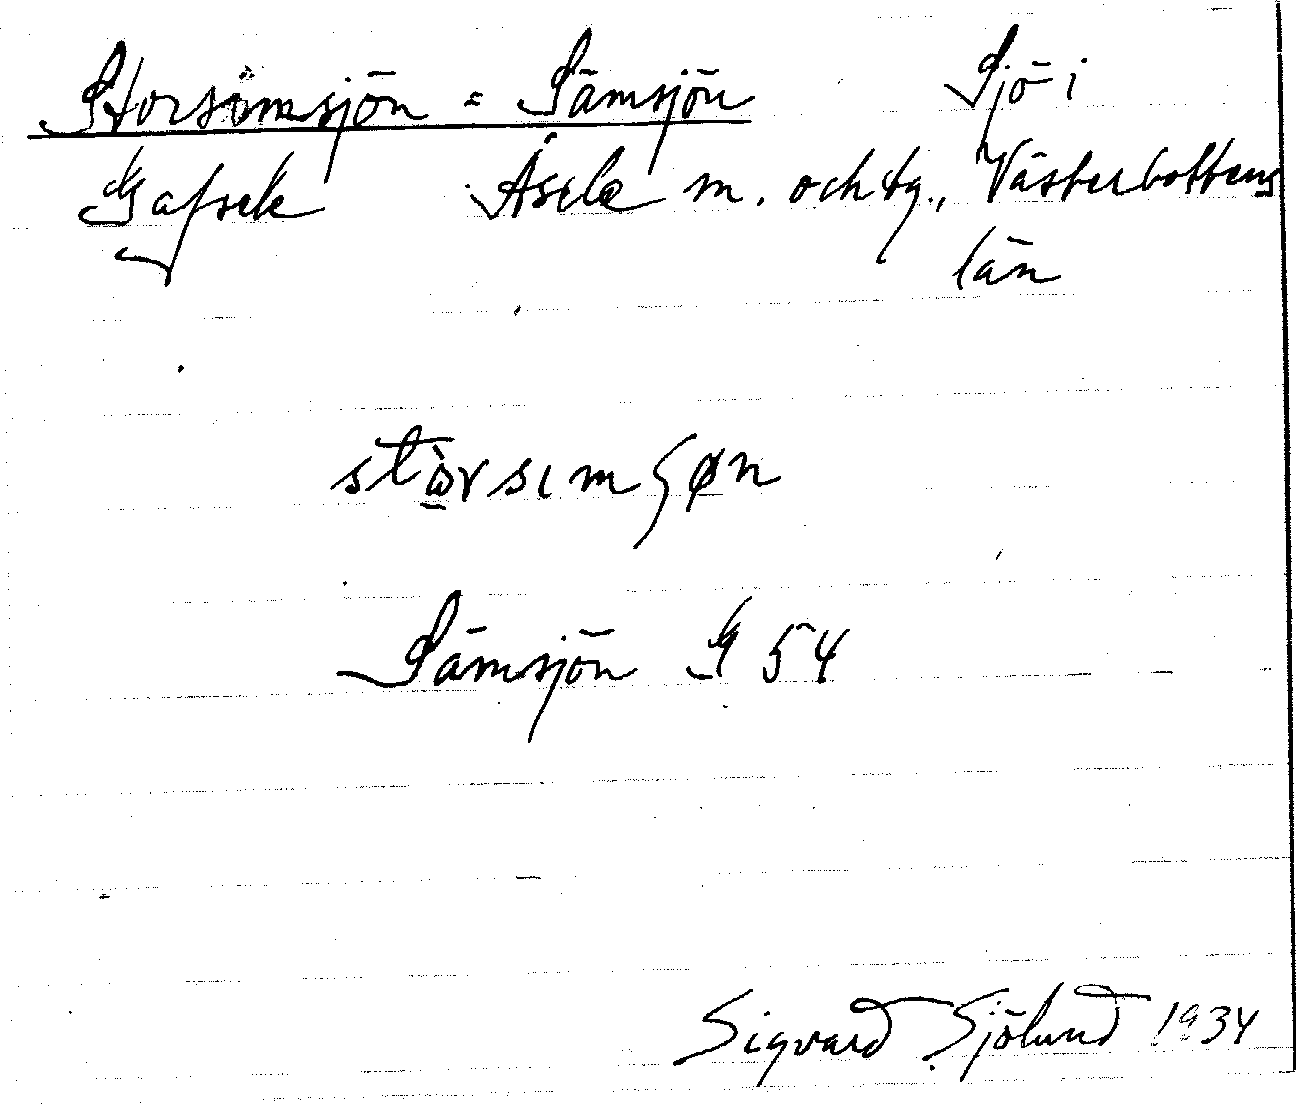 Storsämsjön = Sämsjön Sjö i
Gafsele Åsele m. och tg., Västerbottens
län
stòrsımʃøn
Sämsjön G 54
Sigvard Sjölund 1934